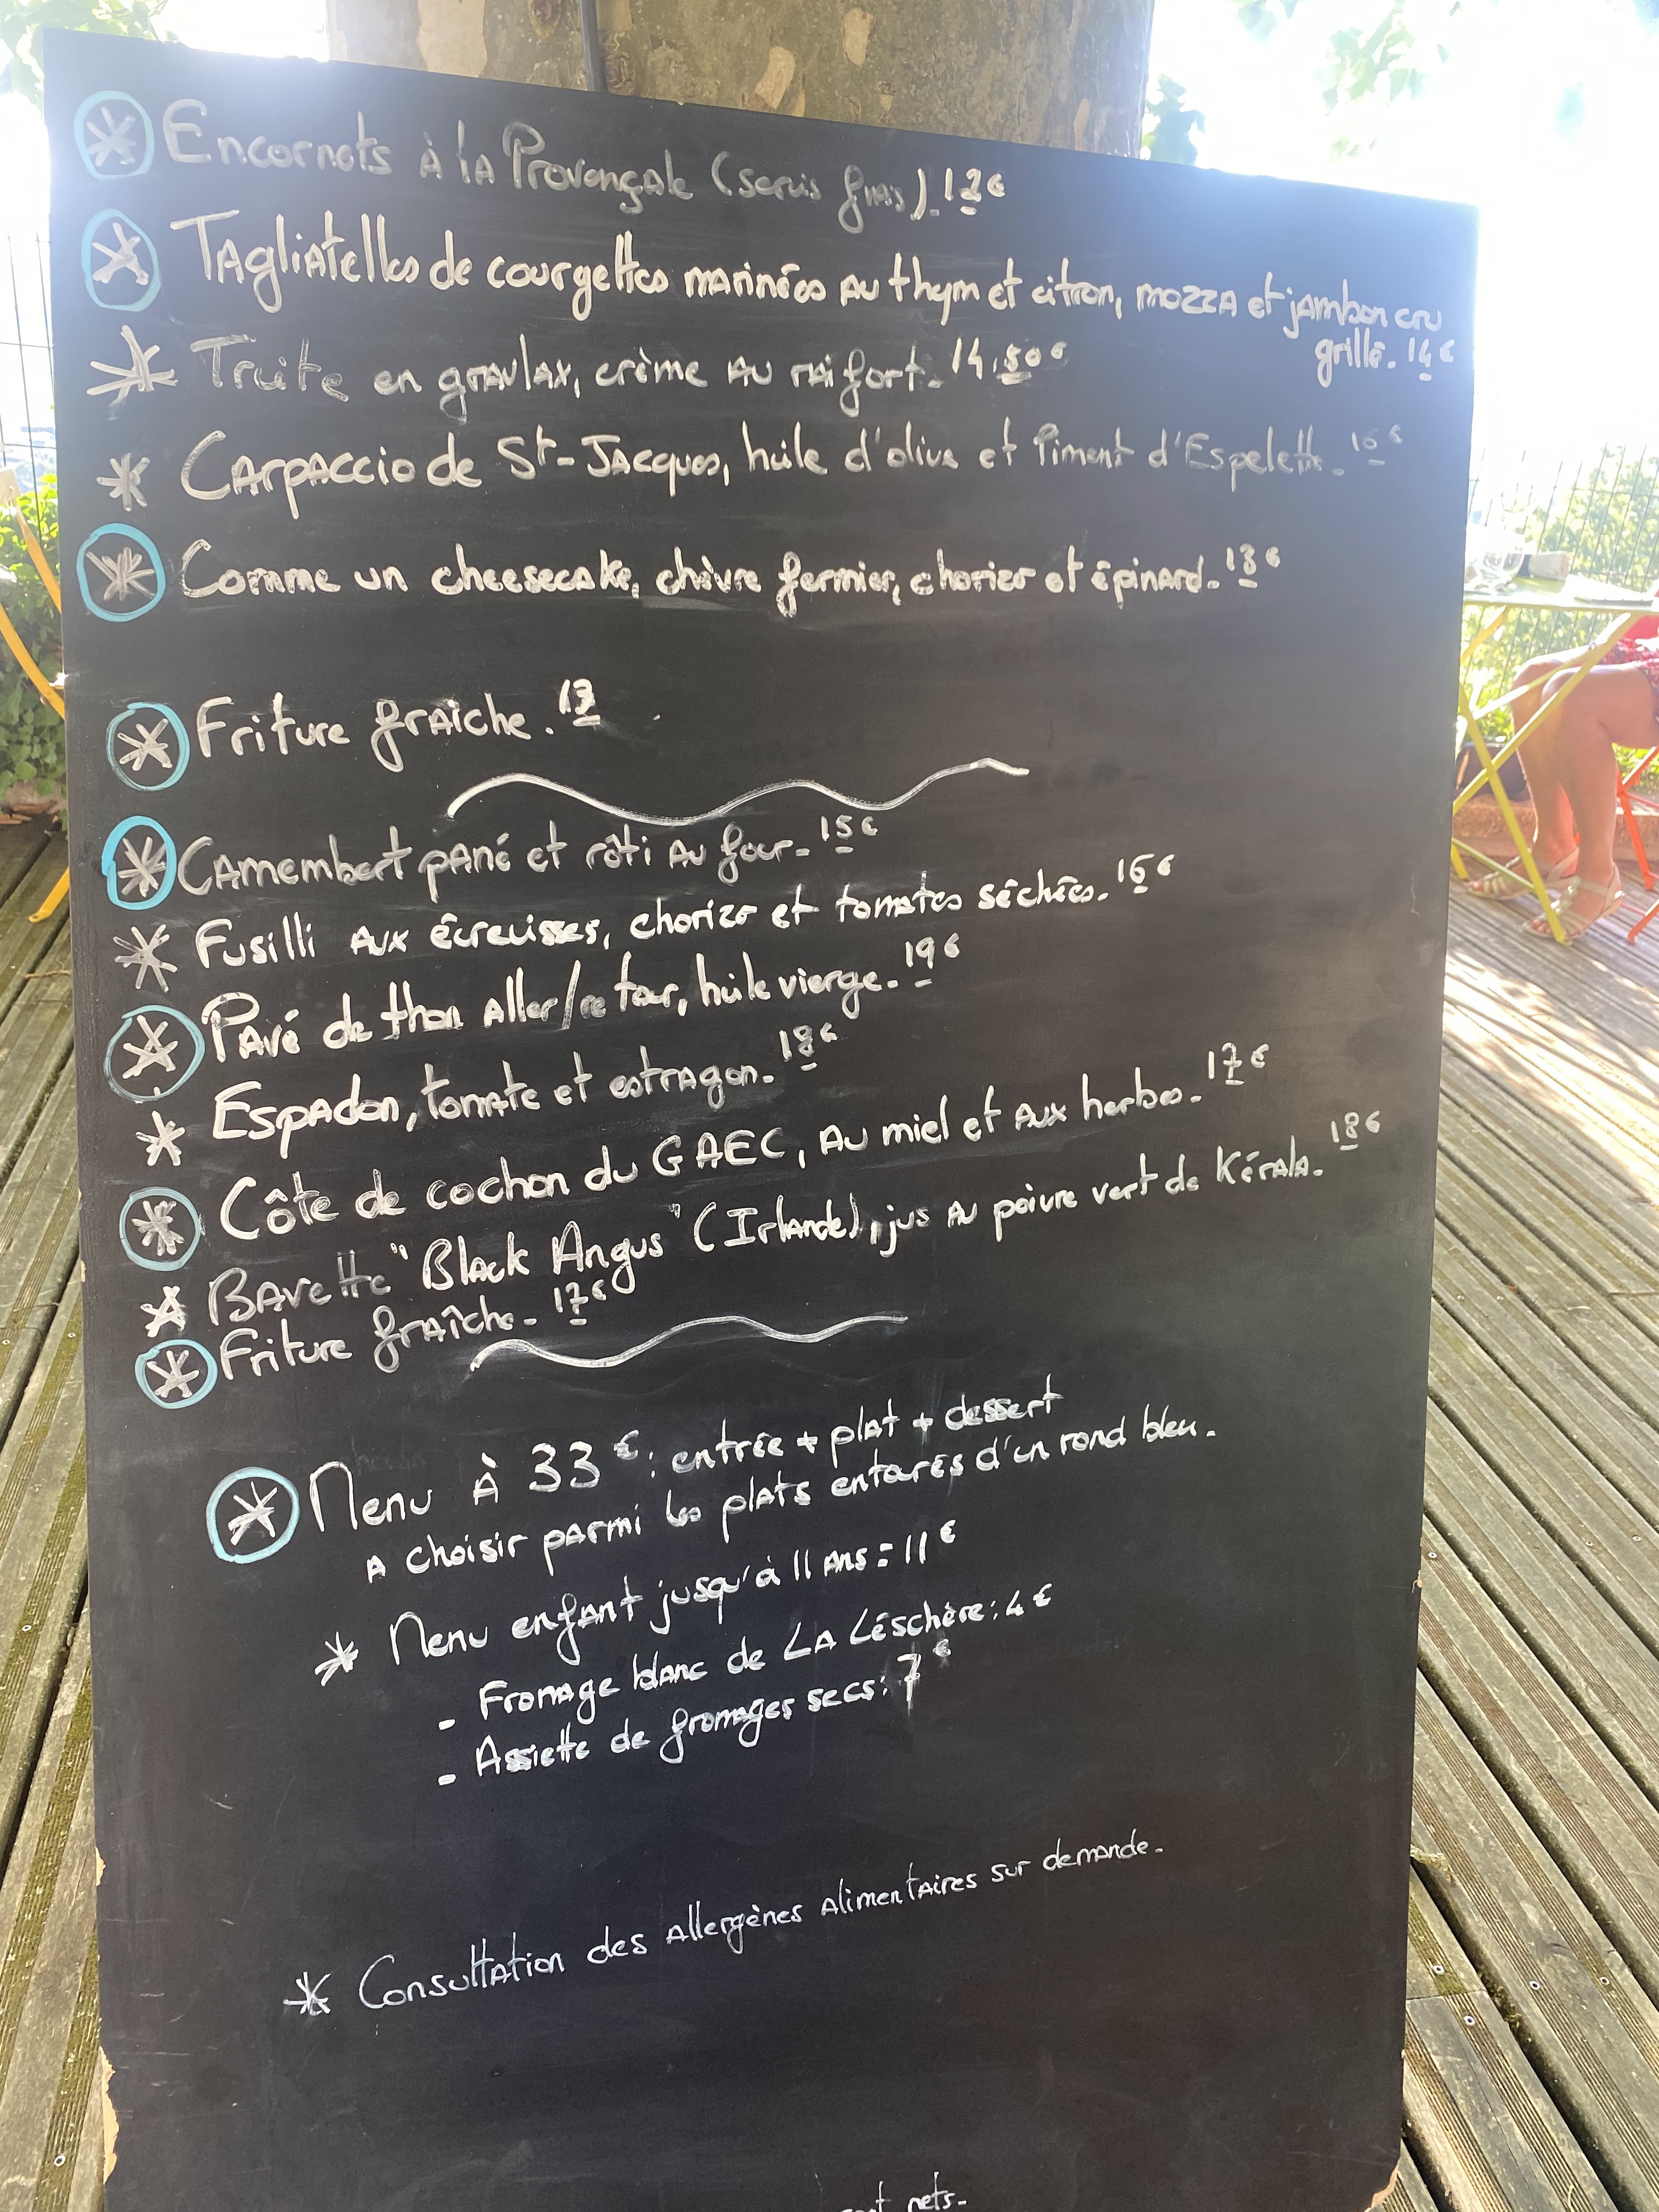 Encornets à la Provençale (servis frais). 12€
Tagliatelles de courgettes marinées au thym et citron, mozza et jambon cru
grillé. 14€
Truite en gravlax, crème au raifort. 14.50€
Carpaccio de St-Jacques, huile d'olive et Piment d'Espelette. 16€
Comme un cheesecake, chèvre fermier, chorizo et épinard. 13€
Friture fraîche. 13
Camembert pané et rôti au four. 15€
Fusilli aux écrevisses, chorizo et tomates séchées. 16€
Pavé de thon aller/retour, huile vierge. 19€
Espadon, tomate et estragon. 18€
Côte de cochon du GAEC, au miel et aux herbes. 17€
Bavette "Black Angus" (Irlande), jus au poivre vert de Kérala. 18€
Friture fraîche. 17€
Menu à 33€: entrée + plat + dessert
a choisir parmi les plats entourés d'un rond bleu.
Menu enfant jusqu'à 11 ans = 11€
- Fromage blanc de La Léschère: 4€
- Assiette de fromages secs: 7€
Consultation des allergènes alimentaires sur demande.
nets.